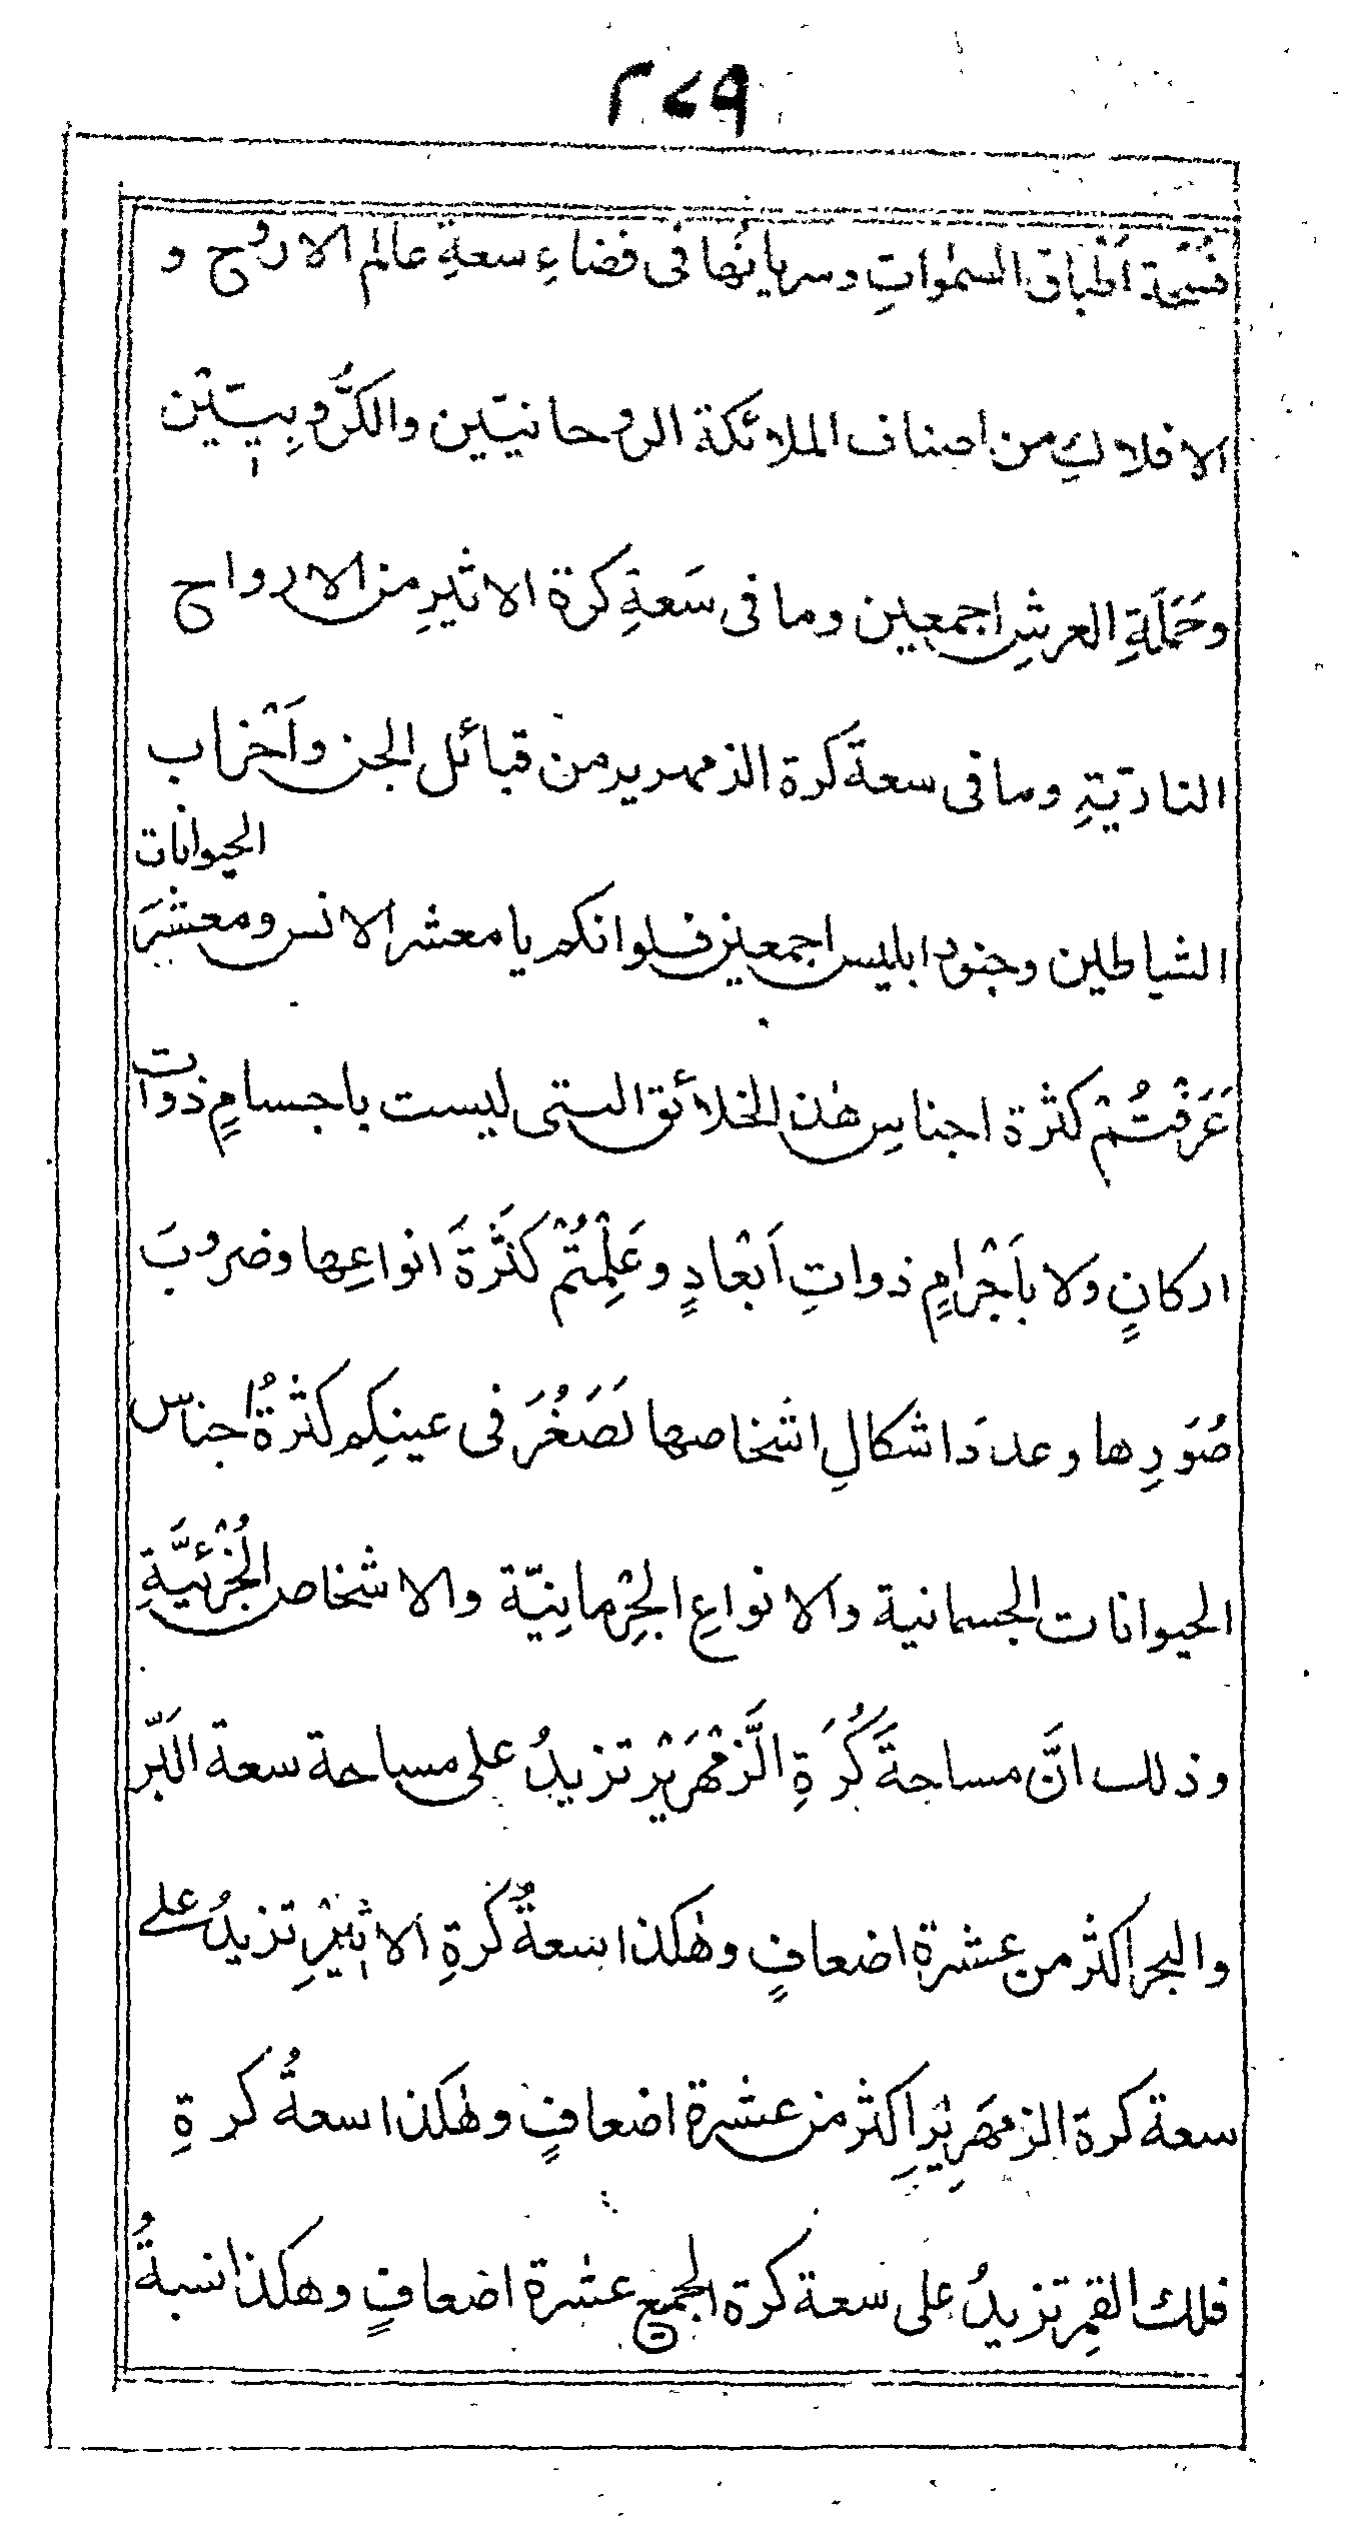 ٢٧٩
فُسْحَة اَطْباق السمٰواتِ وسريانُها فى فضاءِ سعةِ عالم الاروٰح و
الافلاكِ من اصناف الملائكة الروحانيّين والكرُّوبِيّيْن
وحَمَلَةِ العرشِ اجمعين وما فى سَعةِ كرة الاثيرِ من الارواح
الناريّةِ وما فى سعة كرة الزمهرير من قبائل الجن واَحْزاب
الشياطين وجنود ابليس اجمعين فلو انكم يا معشر الانس ومعشَر الحيوانات
عَرَفْتُمْ كثرة اجناسِ هٰذه الخلائق التى ليست باجسامٍ ذوات
اركانٍ ولا باَجْرامٍ ذواتِ اَبْعادٍ وعَلِمْتُمْ كَثْرَةَ انواعِها وضروبَ
صُوَرِها وعددَ اشكالِ اشخاصها لَصَغُرَ فى عينكم كثرةُ اجناس
الحيوانات الجسمانية والانواعِ الجِرْمانِيّة والاشخاص الجُزْئيَّةِ
وذلك انَّ مساحةَ كُرَةِ الزَّمْهَرِيْر تزيدُ على مساحة سعة البَرّ
والبحر اكثر من عشرة اضعافٍ وهٰكذا سعةُ كُرةِ الاثيْرِ تزيدُ على
سعة كرة الزمهَرِيْرِ اكثر من عشرة اضعافٍ وهٰكذا سعةُ كرةِ
فلك القمِر تزيدُ على سعة كرة الجمع عشرة اضعافٍ وهكذا نسبةُ